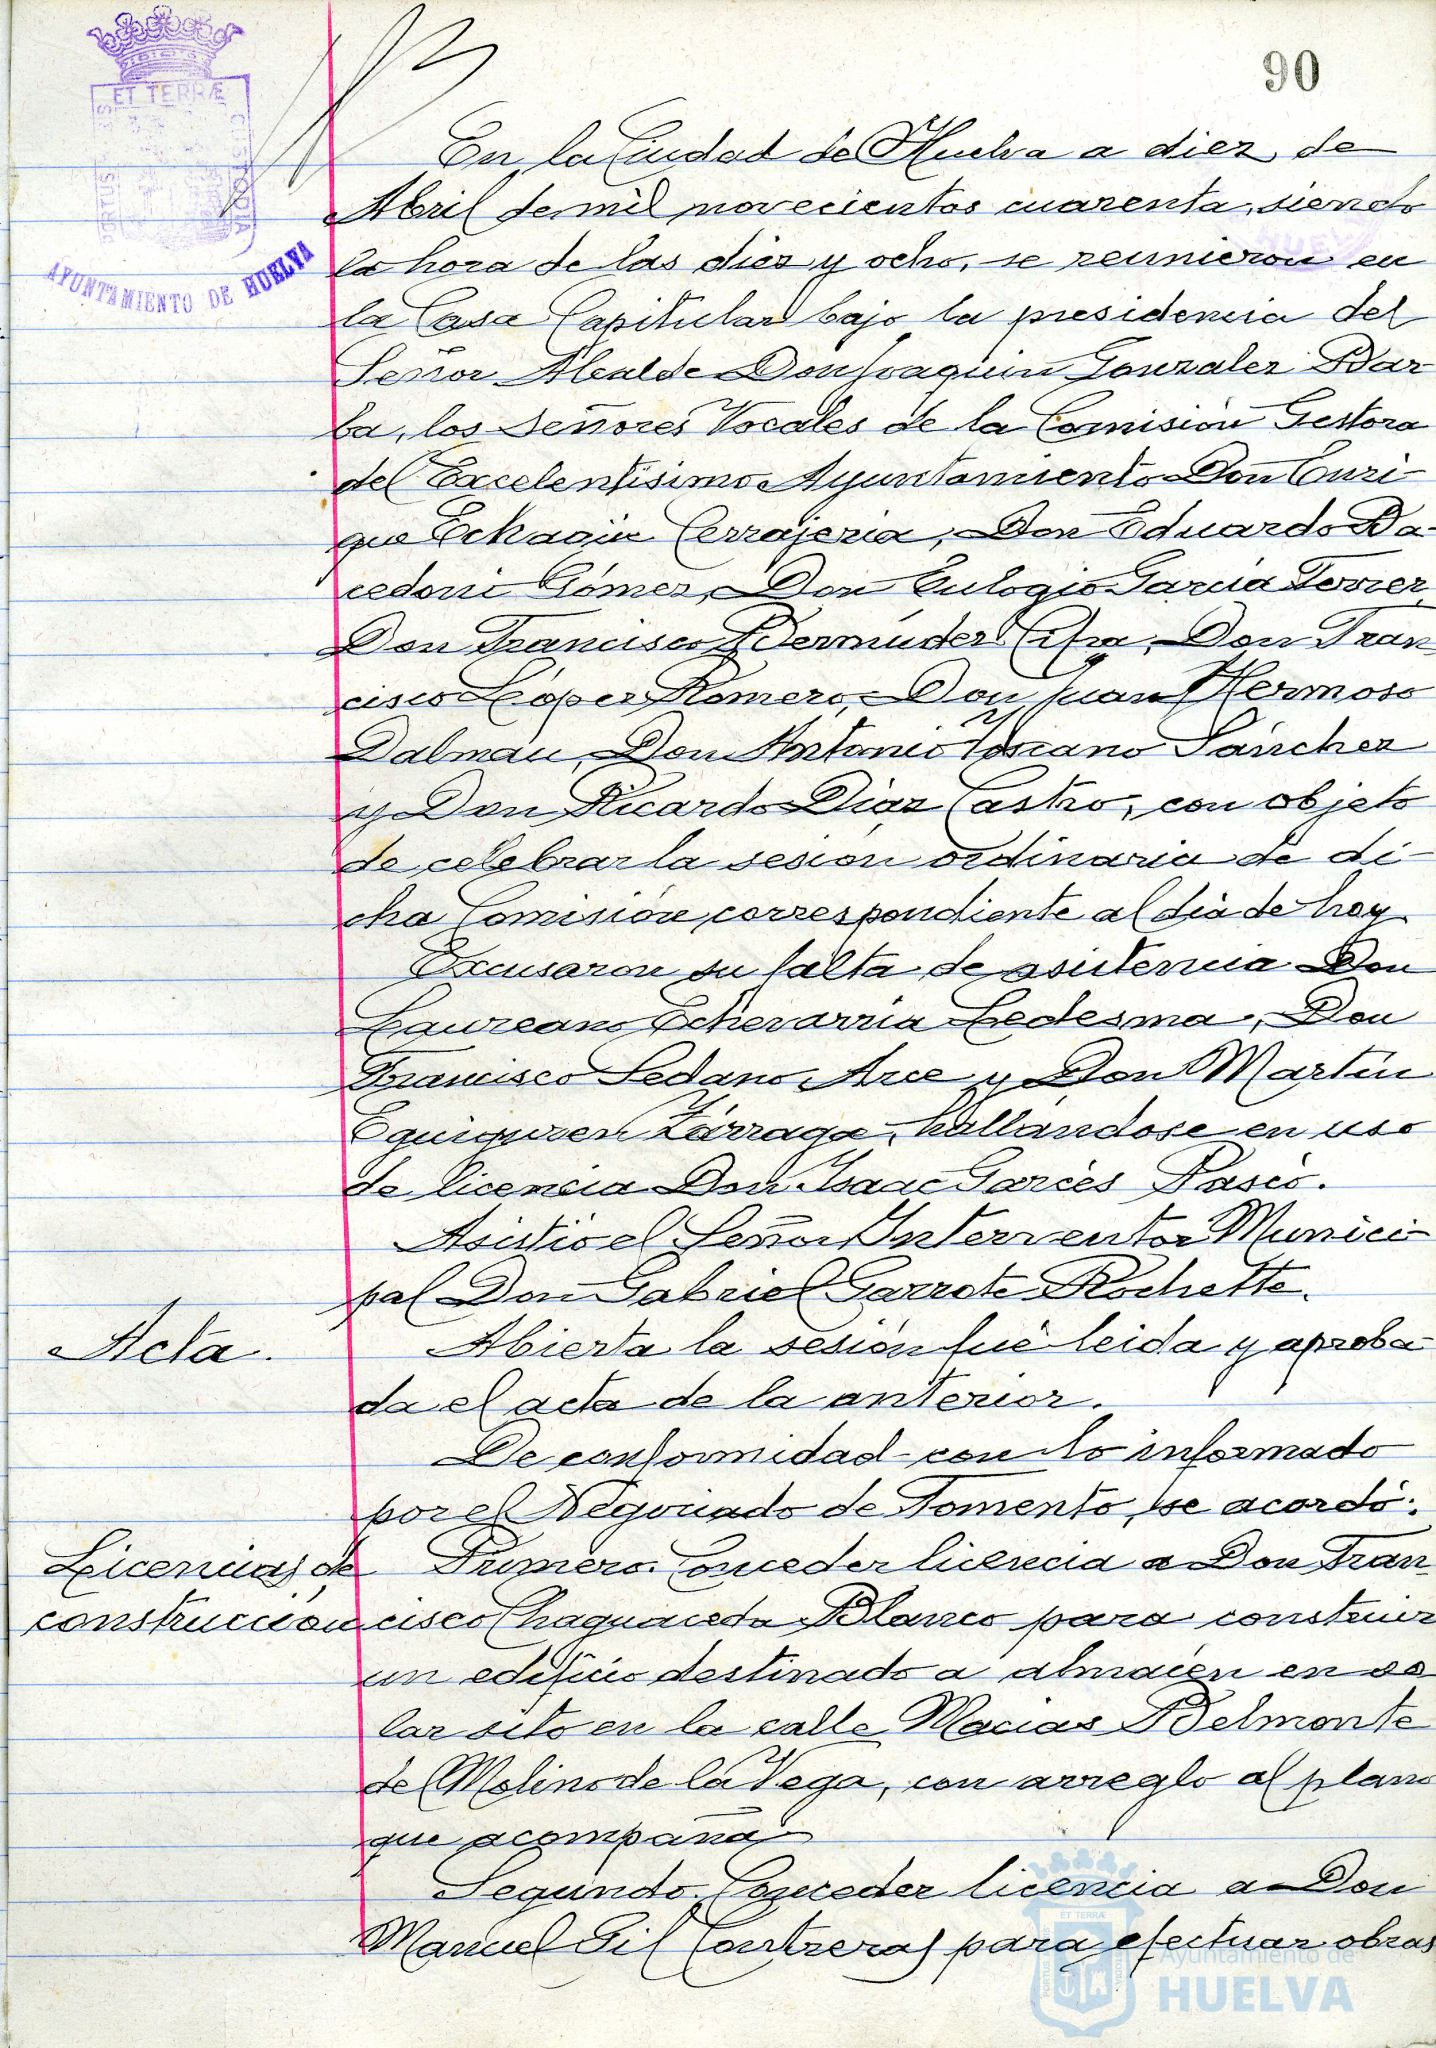 90
ET TERRÆ
PORTUS MARIS
CUSTODIA
AYUNTAMIENTO DE HUELVA
HUEL
En la Ciudad de Huelva a diez de
Abril de mil novecientos cuarenta, siendo
la hora de las diez y ocho, se reunieron en
la Casa Capitular bajo la presidencia del
Señor Alcalde Don Joaquin Gonzalez Bar-
ba, los señores Vocales de la Comisión Gestora
del Excelentísimo Ayuntamiento Don Enri-
que Echagüe Cerrajeria, Don Eduardo Ba-
cedoni Gómez, Don Eulogio García Ferrer,
Don Francisco Bermúdez Cifra, Don Fran-
cisco López Romero, Don Juan Hermoso
Dalmau, Don Antonio Toscano Sánchez
y Don Ricardo Díaz Castro, con objeto
de celebrar la sesión ordinaria de di-
cha Comisión correspondiente al dia de hoy
Excusaron su falta de asistencia Don
Laureano Echevarría Ledesma, Don
Francisco Sedano Arce y Don Martín
Eguiguren Zárraga, hallándose en uso
de licencia Don Isaac Garcés Pascó.
Asistió el Señor Interventor Munici-
pal Don Gabriel Garrote Rochette.
Acta.
Abierta la sesión fué leida y aproba-
da el acta de la anterior.
De conformidad con lo informado
por el Negociado de Fomento, se acordó:
Licencias de
construccion
Primero. Conceder licencia a Don Fran-
cisco Chaguaceda Blanco para construir
un edificio destinado a almacén en so
lar sito en la calle Macías Belmonte
del Molino de la Vega, con arreglo al plano
que acompaña
Segundo. Conceder licencia a Don
Manuel Gil Contreras para efectuar obras
ET TERRÆ
PORTUS
CUSTODIA
Ayuntamiento de
HUELVA